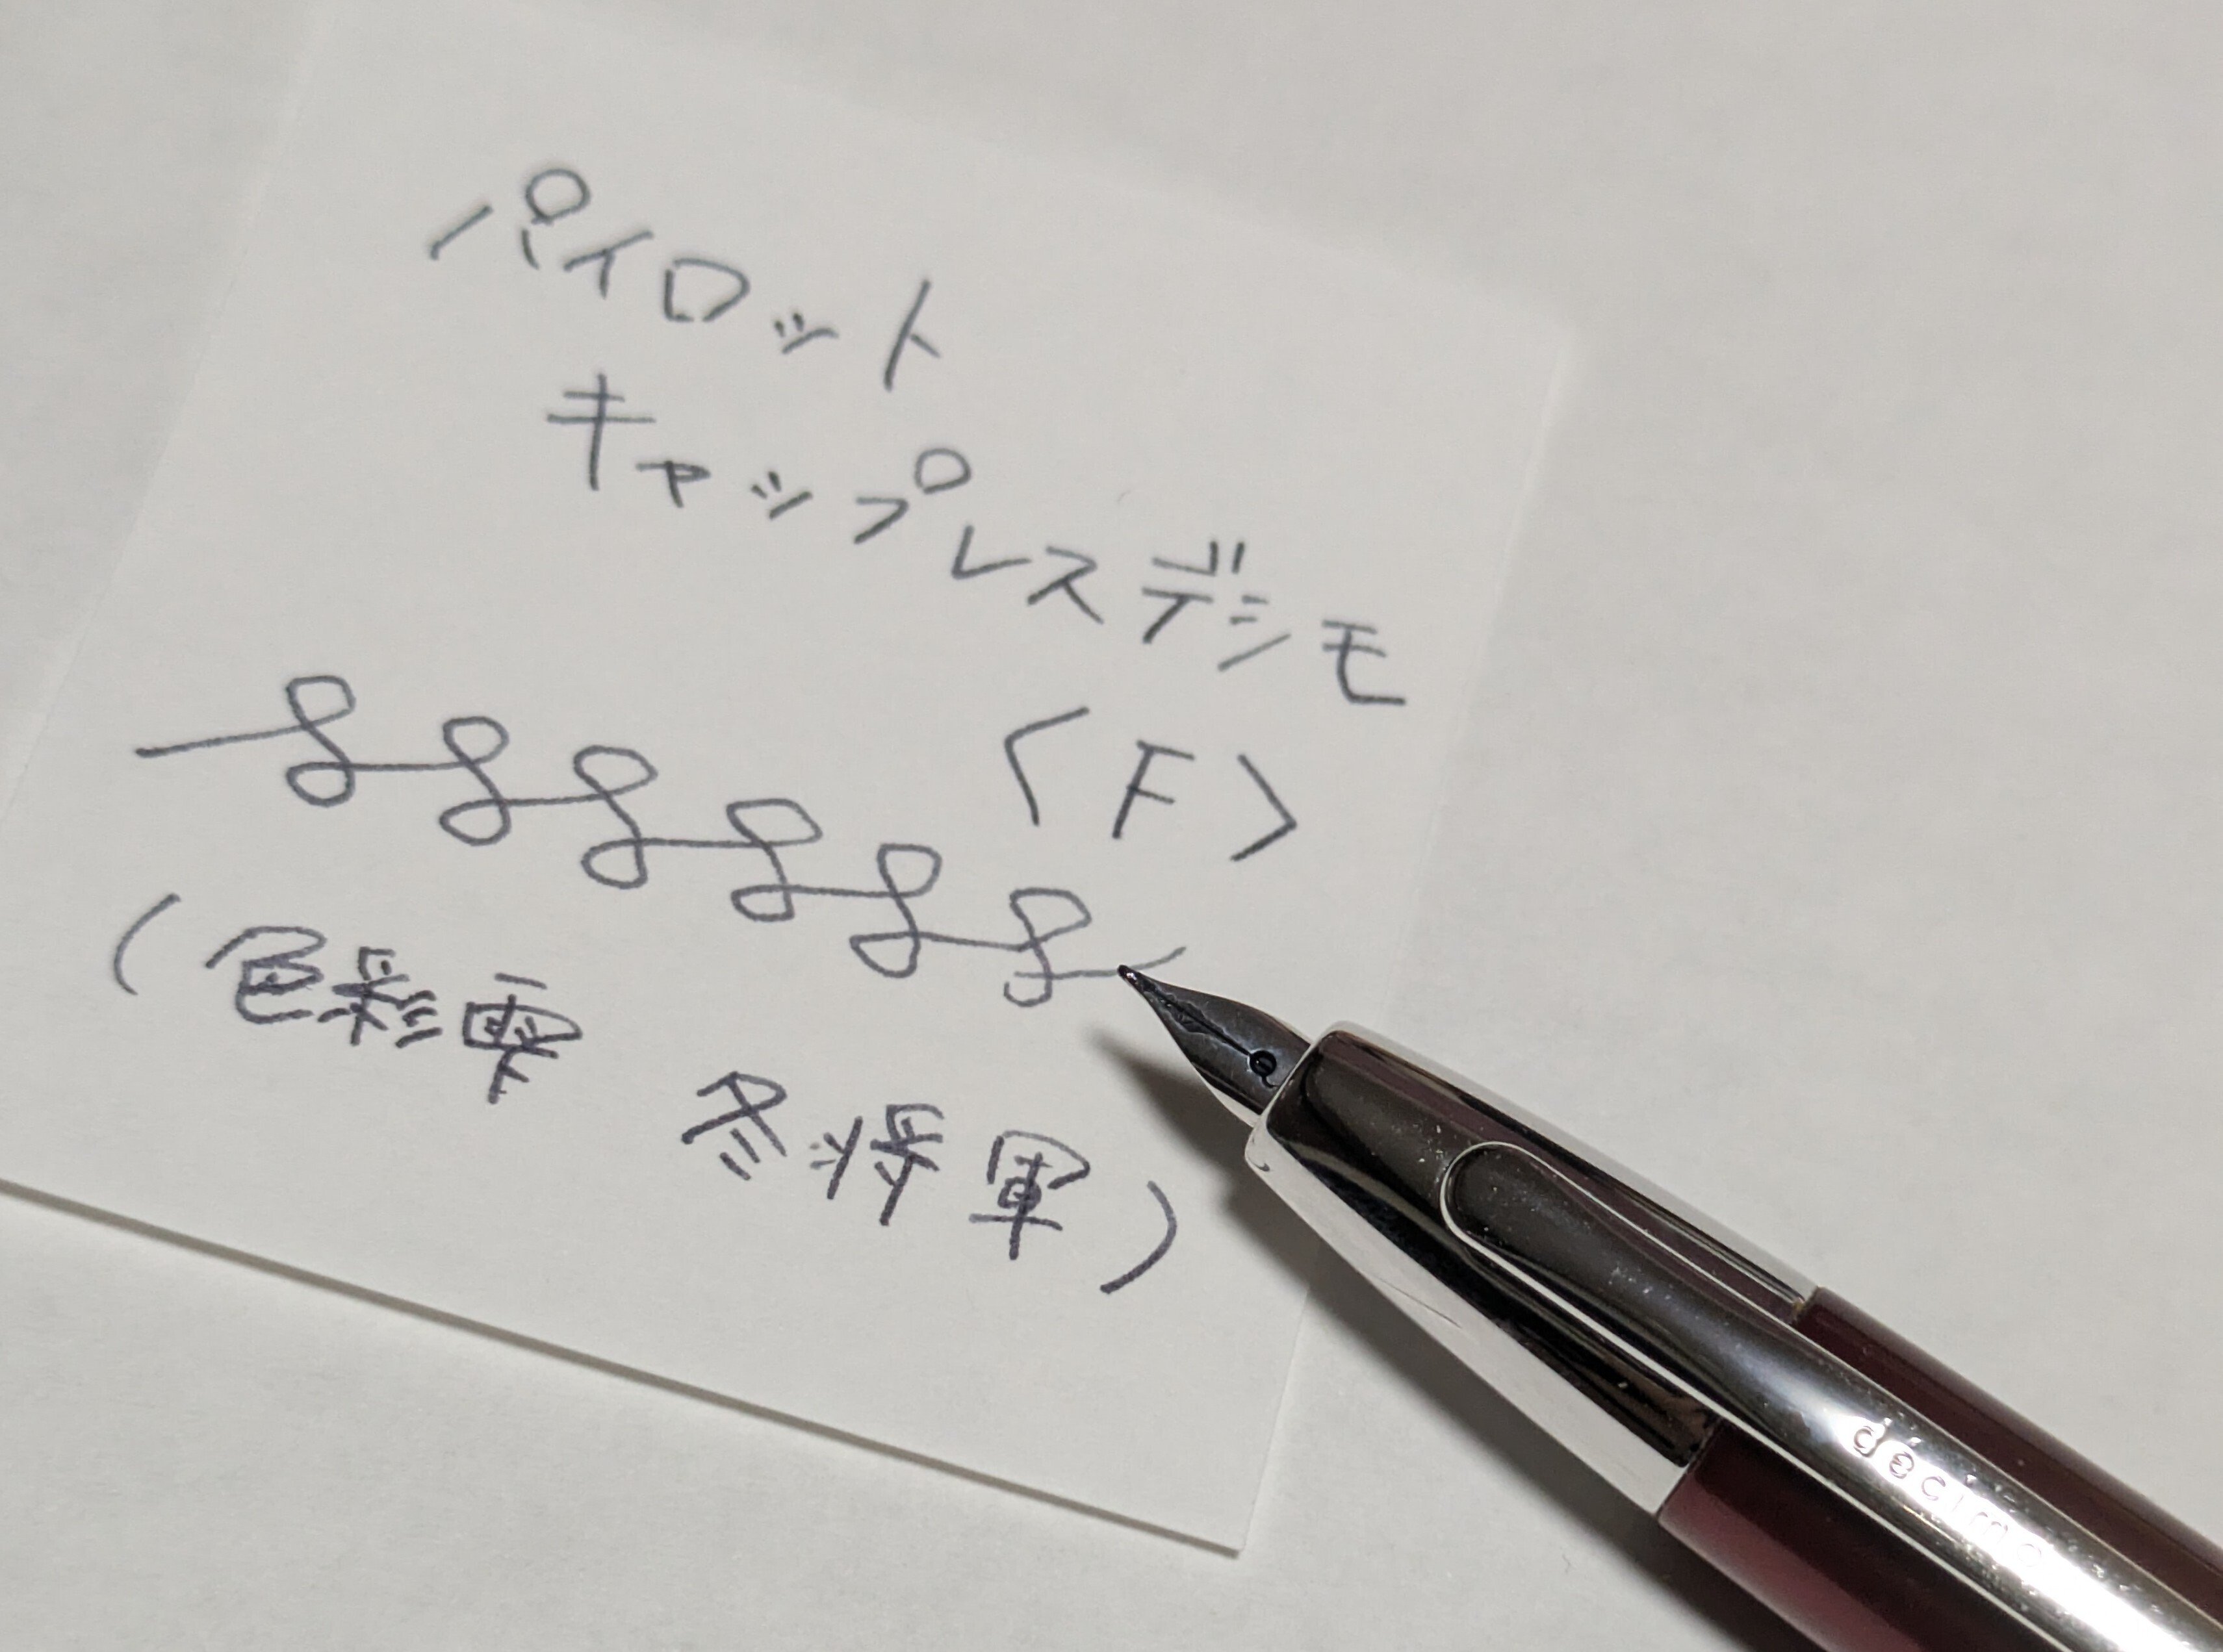 パイロット
キャップレスデシモ
<F>
(色彩雫 冬将軍)
decimo